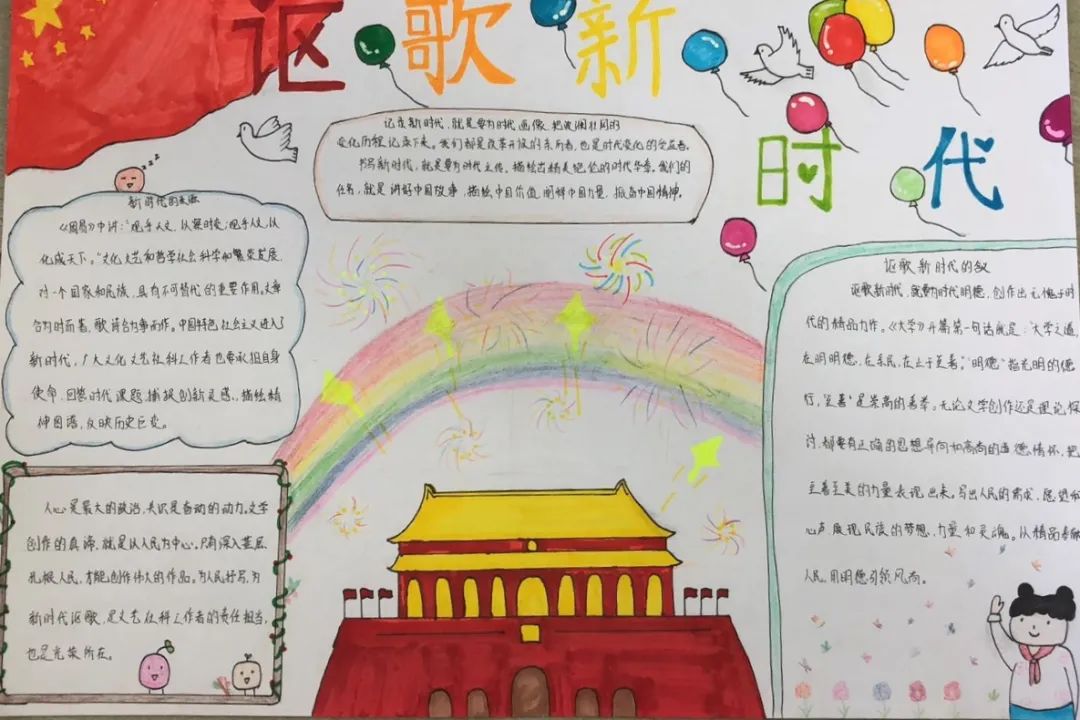 讴歌新
时代
记录新时代,就是要为时代画像,把波澜壮阔的
变化历程记录下来。我们都是改革开放的亲历者,也是时代变化的受益者。
书写新时代,就是要为时代立传,描绘出精美绝伦的时代华章。我们的
任务,就是讲好中国故事,描绘中国价值,阐释中国力量,拔高中国精神。
新时代的
《周易》中讲:“观乎人文,以察时变;观乎人文,以
化成天下。”文化文艺和哲学社会科学和繁荣发展,
对一个国家和民族,具有不可替代的重要作用。文章
合为时而著,歌诗合为事而作。中国特色社会主义进入了
新时代,广大文化文艺社科工作者也要承担自身
使命,回答时代课题,捕捉创新灵感,描绘精
神图谱,反映历史巨变。
人心是最大的政治,共识是奋动的动力。文学
创作的真谛,就是以人民为中心。只有深入基层、
扎根人民,才能创作伟大的作品。为人民抒写,为
新时代讴歌,是文艺社科工作者的责任担当,
也是光荣所在。
讴歌新时代的
讴歌新时代,就要为时代明德,创作出无愧于时
代的精品力作。《大学》开篇第一句话就是:“大学之道,
在明明德,在亲民,在止于至善。”“明德”指光明的德
行,“至善”是崇高的善举。无论文学创作还是理论探
讨,都要有正确的思想导向和高尚的道德情怀,把
至善至美的力量表现出来。写出人民的需求、愿望和
心声,展现民族的梦想、力量和灵魂。以精品奉献
人民,用明德引领风尚。